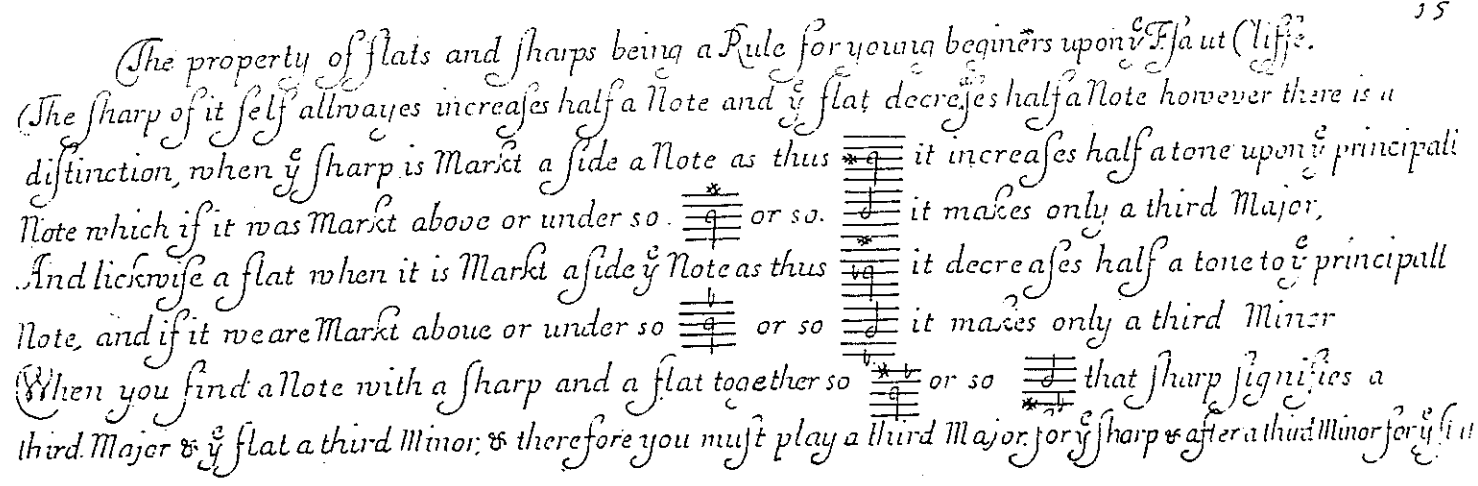 15
The property of flats and ſharps being a Rule for young beginērs upon yͤ Fſa ut Cliffe.
The ſharp of it ſelf allwayes increaſes half a Note and yͤ flat decreſes half a Note however there is a
diſtinction, when yͤ ſharp is Markt a ſide a Note as thus it increaſes half a tone upon yͤ principall
Note which if it was Markt above or under so. or so. it makes only a third Major,
And lickwiſe a flat when it is Markt aſide yͤ Note as thus it decreaſes half a tone to yͤ principall
Note, and if it weare Markt aboue or under so or so it makes only a third Minor
When you find a Note with a ſharp and a flat together so or so that ſharp ſignifies a
third Major & yͤ flat a third Minor, & therefore you muſt play a third Major for yͤ ſharp & after a third Minor for yͤ